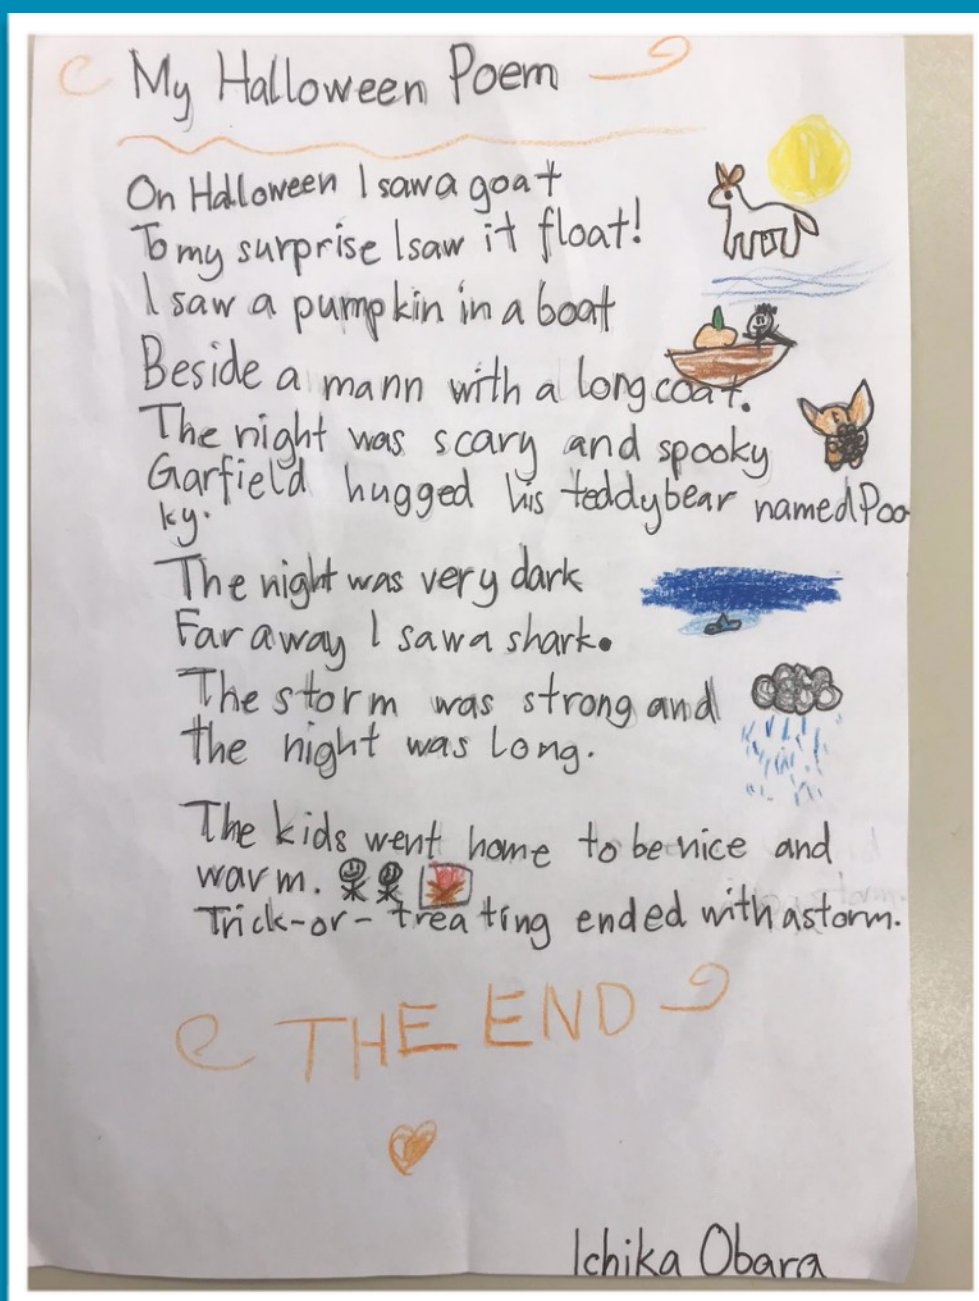 My Halloween Poem
On Halloween I saw a goat
To my surprise I saw it float!
I saw a pumpkin in a boat
Beside a mann with a long coat.
The night was scary and spooky
Garfield hugged his teddybear named Poo
ky.
The night was very dark
Far away I saw a shark.
The storm was strong and
the night was long.
The kids went home to be nice and
warm.
Trick-or-treating ended with a storm.
THE END
Ichika Obara